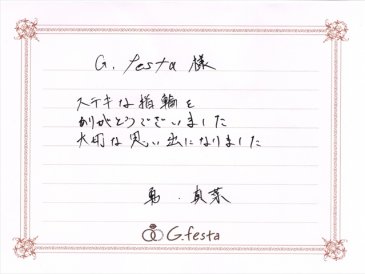 G. festa 様
ステキな指輪を
ありがとうございました
大切な思い出になりました
勇 . 真菜
G.festa